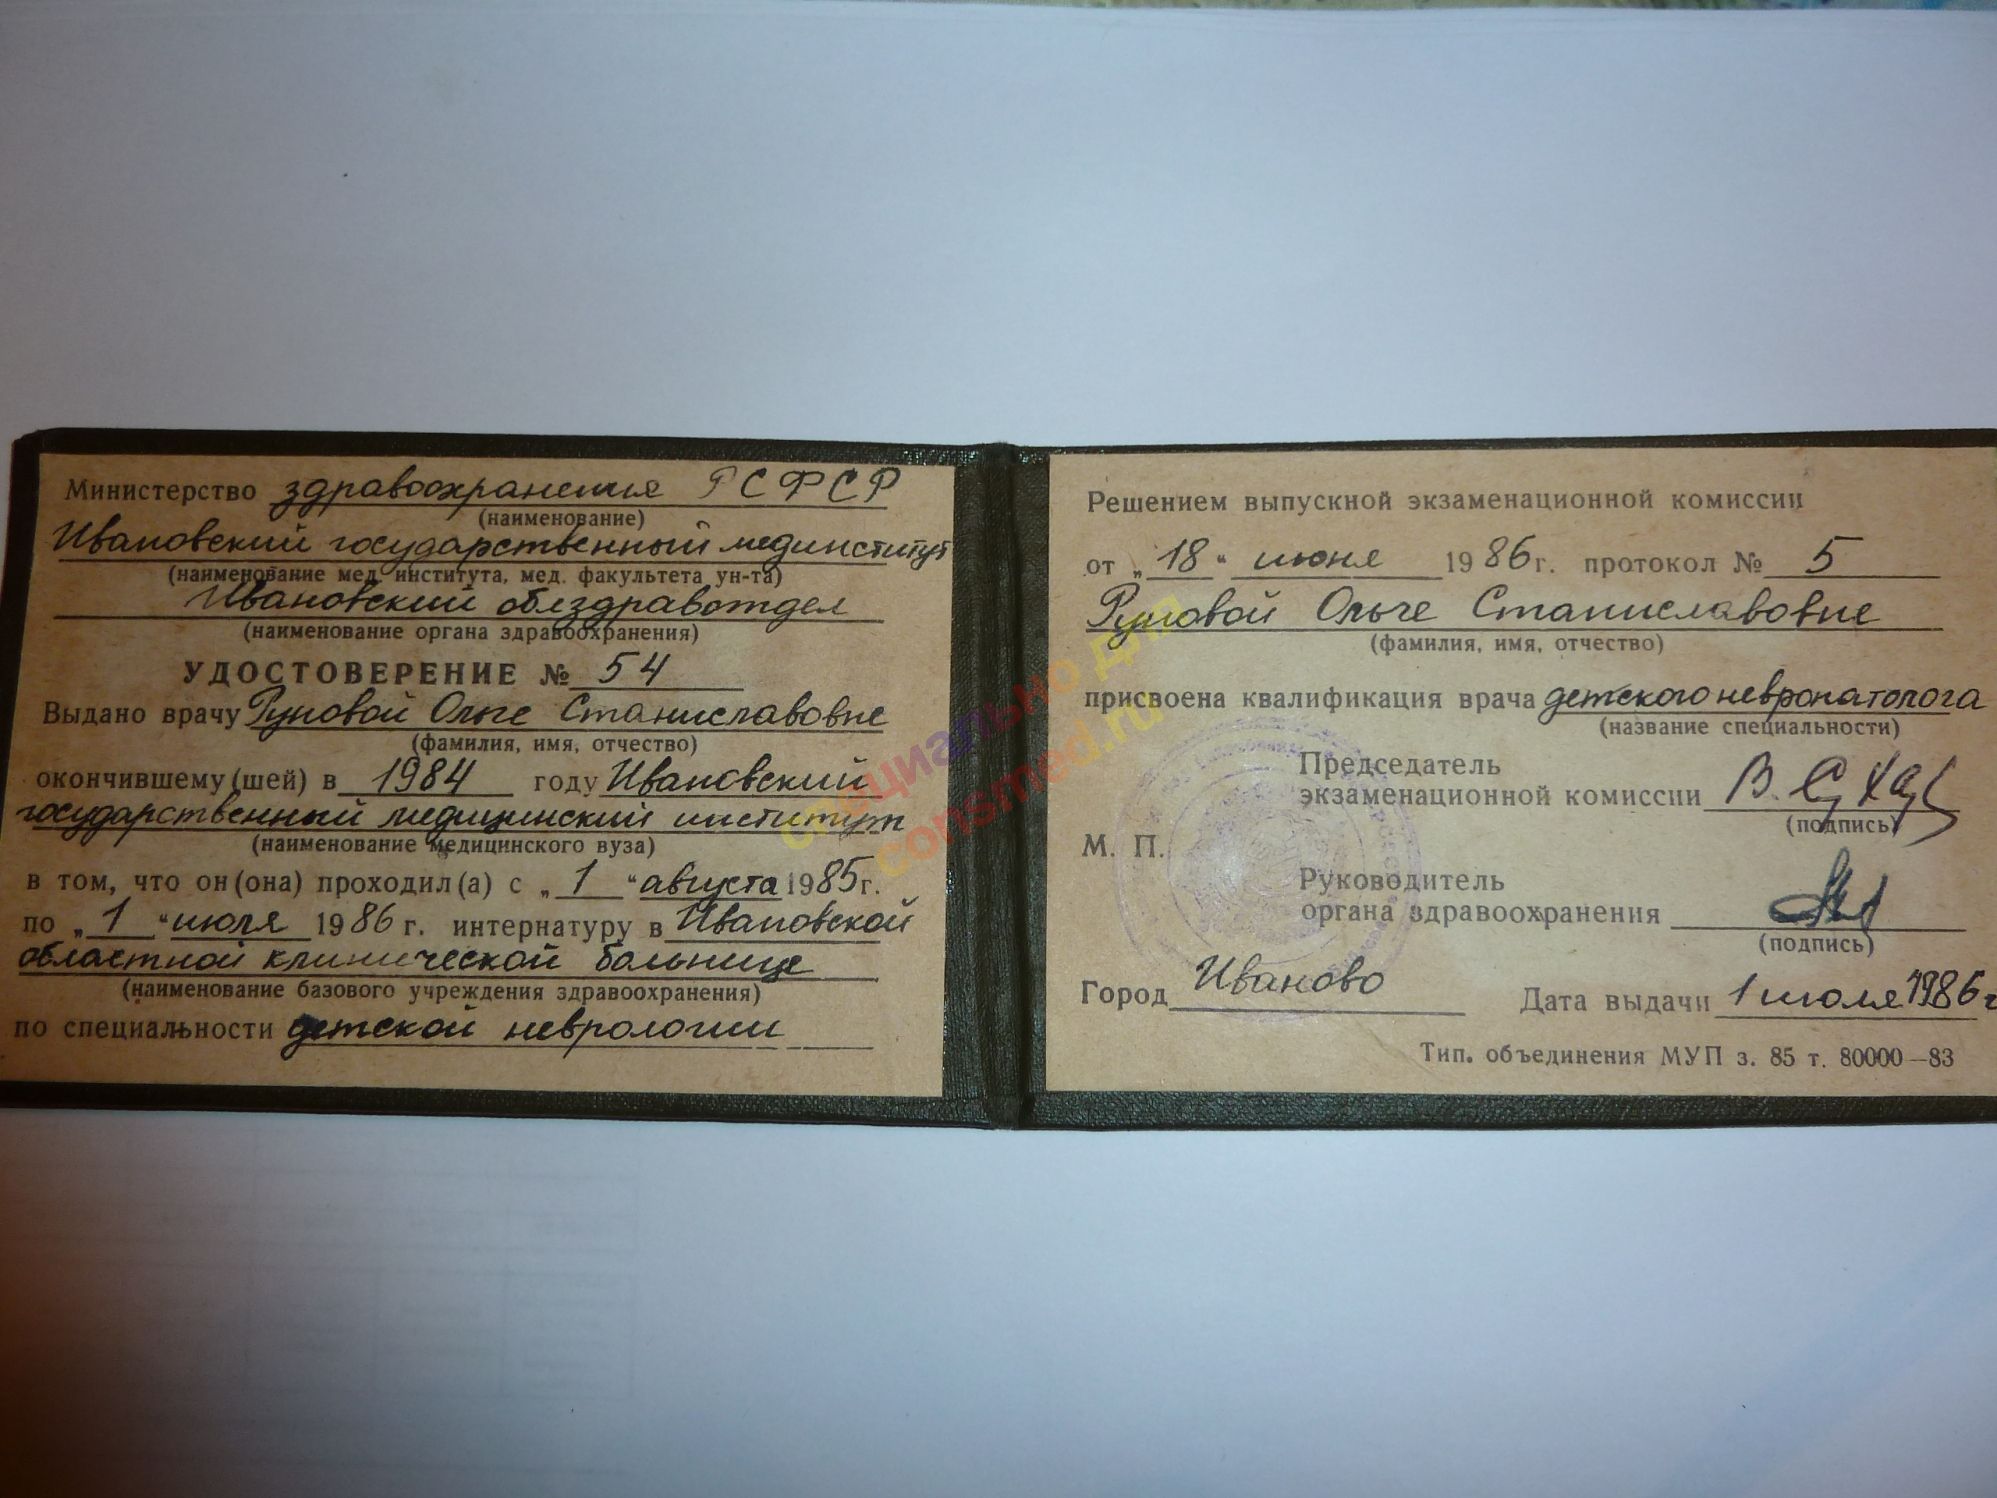 Министерство здравоохранения РСФСР
(наименование)
Ивановский государственный мединститут
(наименование мед. института, мед. факультета ун-та)
Ивановский облздравотдел
(наименование органа здравоохранения)
УДОСТОВЕРЕНИЕ № 54
Выдано врачу Руновой Ольге Станиславовне
(фамилия, имя, отчество)
окончившему (шей) в 1984 году Ивановский
государственный медицинский институт
(наименование медицинского вуза)
в том, что он (она) проходил (а) с „1“ августа 1985 г.
по „1“ июля 1986 г. интернатуру в Ивановской
областной клинической больнице
(наименование базового учреждения здравоохранения)
по специальности детской неврологии
Решением выпускной экзаменационной комиссии
от „18“ июня 1986 г. протокол № 5
Руновой Ольге Станиславовне
(фамилия, имя, отчество)
присвоена квалификация врача детского невропатолога
(название специальности)
Председатель
экзаменационной комиссии
(подпись)
М. П.
Руководитель
органа здравоохранения
(подпись)
Город Иваново Дата выдачи 1 июля 1986 г
Тип. объединения МУП з. 85 т. 80000—83
специально для
consmed.ru